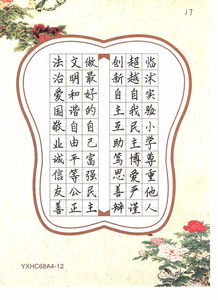 17
临沭实验小学尊重他人
超越自我民主博学严谨
创新自主互助笃思善辩
做最好的自己富强民主
文明和谐自由平等公正
法治爱国敬业诚信友善
YXHC68A4-12